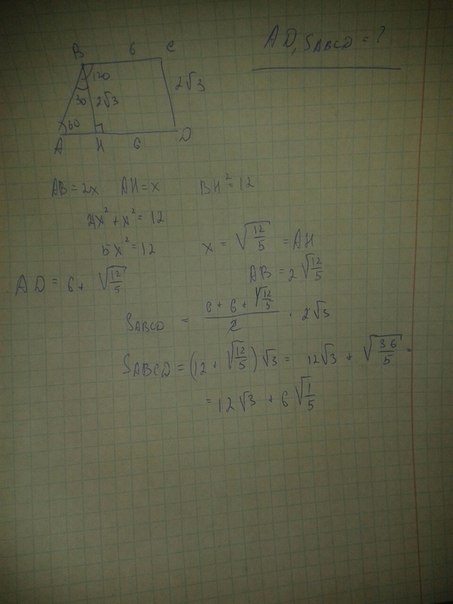 AD, S ABCD = ?
B 6 C
120
30 2√3 2√3
60
A H 6 D
AB = 2x AH = x BH² = 12
4x² + x² = 12
5x² = 12 x = √(12/5) = AH
AB = 2√(12/5)
AD = 6 + √(12/5)
S ABCD = (6 + 6 + √(12/5))/2 · 2√3
S ABCD = (12 + √(12/5))√3 = 12√3 + √(36/5) =
= 12√3 + 6√(1/5)